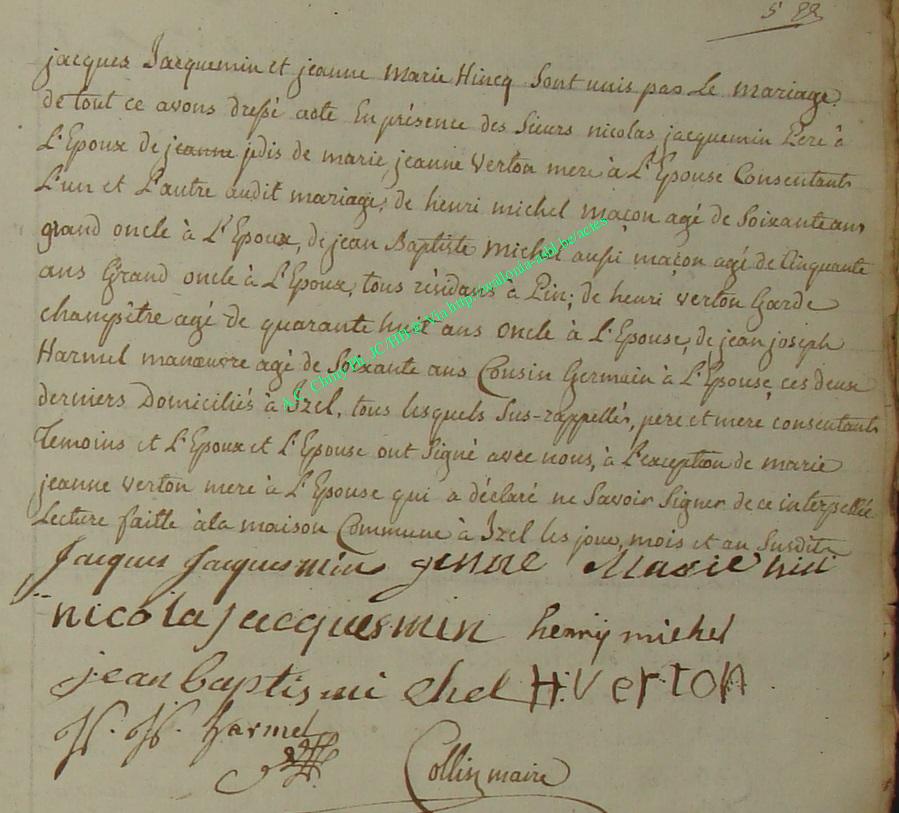 5 
jacques Jacquemin et jeanne Marie Hincq Sont unis par Le mariage.
de tout ce avons dressé acte En présence des Sieurs nicolas jacquemin Pere à
L'Epoux de jeanne jdis de marie jeanne Verton mere à L'Epouse Consentants
L'un et L'autre audit mariage, de henri michel maçon agé de Soixante ans
grand oncle à L'Epoux, de jean Baptiste Michel aussi maçon agé de Cinquante
ans Grand oncle à L'Epoux, tous résidans à Pin; de henri verton Garde
champêtre agé de quarante huit ans oncle à L'Epouse, de jean joseph
Harmel manœuvre agé de Soixante ans Cousin Germain à L'Epouse, ces deux
derniers Domiciliés à Izel, tous lesquels Sus-rappellés, pere et mere consentants
Temoins et L'Epoux et L'Epouse ont Signé avec nous, à L'exception de marie
jeanne verton mere à L'Epouse qui a déclaré ne Savoir Signer de ce interpellée
Lecture faitte à la maison Commune à Izel les jour, mois et an Susdits
A.C. Chiny via http://wallonia-asbl.be/actes
Jacques Jacquesmin Marie
nicola Jacquesmin henry michel
jean baptis mi chel H. Verton
harmel
Collin maire